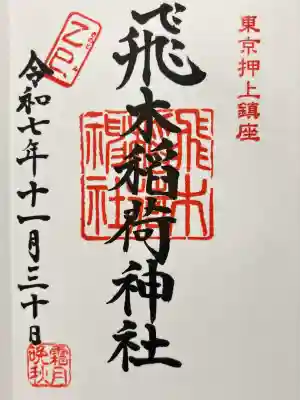 東京押上鎮座
飛木稲荷神社
飛木稲荷神社
令和七年十一月三十日
霜月
晩秋